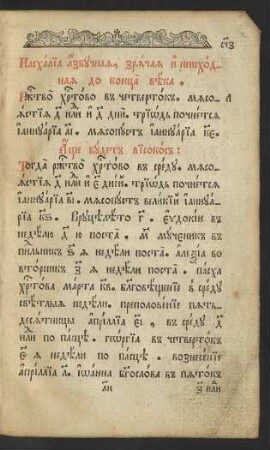 сп҃з
Пасха́лїа а҆́збꙋчная, зрѧ́чаѧ и҆ неисхо́д-
наѧ до конца̀ вѣ́ка .
Ржⷭ҇тво̀ хрⷭ҇то́во въ четверто́къ. мѧсо-
ѧ́стїѧ д҃ нⷣли и҆ д҃ днѝ. трїѡ́дь почне́тсѧ
і҆аннꙋа́рїѧ а҃і. мѧсопꙋ́стъ і҆аннꙋа́рїѧ к҃е.
А҆́ще бꙋ́детъ високо́съ :
Тогда̀ ржⷭ҇тво̀ хрⷭ҇то́во въ средꙋ̀. мѧсо-
ѧ́стїѧ д҃ нⷣли и҆ е҃ дні́й. трїѡ́дь почне́тсѧ
і҆аннꙋа́рїѧ в҃і. мѧсопꙋ́стъ вели́кїй і҆аннꙋа́-
рїѧ к҃ѕ. Врꙋцелѣ́то г҃. є҆ѵдокі́и въ
недѣ́лю д҃ ю поста̀. м҃ мꙋ́ченикъ въ
пѧто́къ ѕ҃ ѧ недѣ́ли поста̀. а҆леѯі́а во
вто́рникъ з҃ ѧ недѣ́ли поста̀. па́сха
хрⷭ҇то́ва ма́рта к҃в. благовѣ́щенїе в̾ средꙋ̀
свѣ́тлыѧ недѣ́ли. преполове́нїе пѧть-
десѧ́тницы а҆прі́ллїа е҃і, въ средꙋ̀ д҃
нⷣли по па́сцѣ. геѡ́ргїа въ четверто́къ
е҃ ѧ недѣ́ли по па́сцѣ. вознесе́нїе
а҆прі́ллїа л҃. і҆ѡа́нна бг҃осло́ва въ пѧто́къ
з҃ нⷣли